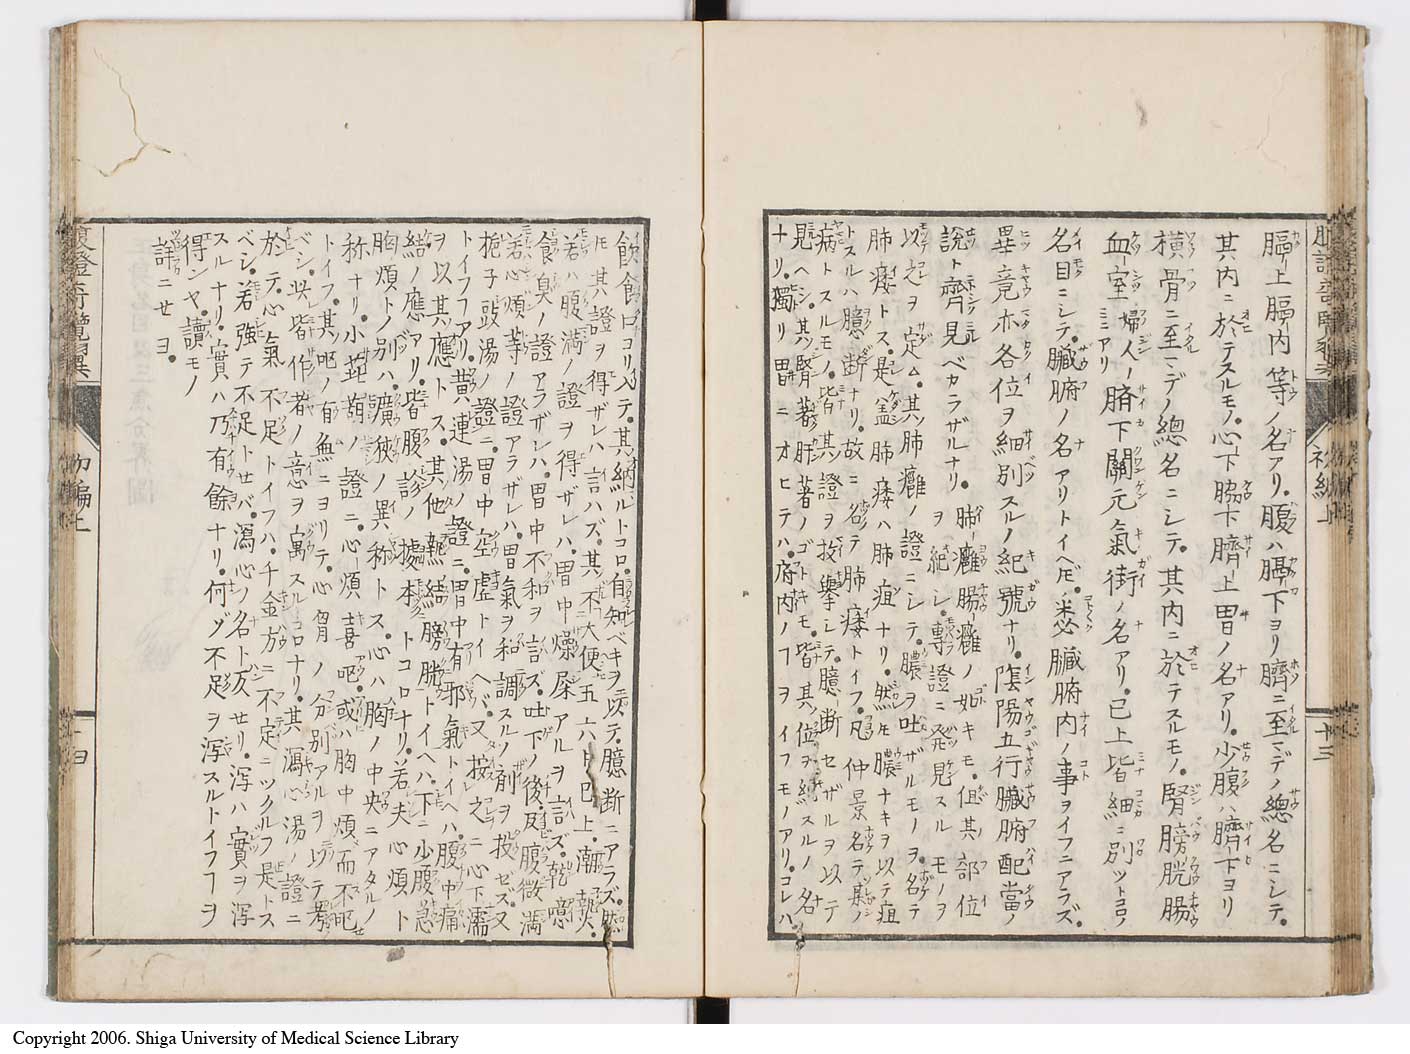 膈上膈内等ノ名アリ。腹ハ膈下ヨリ臍ニ至マデノ總名ニシテ。
其内ニ於テスルモノ。心下脇下臍上胃ノ名アリ。少腹ハ臍下ヨリ
横骨ニ至マデノ總名ニシテ。其内ニ於テスルモノ。腎膀胱腸
血室婦人ニアリ臍下關元氣街ノ名アリ。已上皆細ニ別ツトコロノ
名目ニシテ。臓腑ノ名アリトイヘ𪜈。悉臓腑内ノ事ヲイフニアラズ。
畢竟亦各位ヲ細別スルノ紀號ナリ。陰陽五行臓腑配當ノ
説ト齊見ベカラザルナリ。肺癰腸癰ノ如キモ。但其部位
ヲ紀シ。專證ニ発見スルモノヲ
以之ヲ定ム。其肺癰ノ證ニシテ。膿ヲ吐ザルモノヲ。名テ
肺痿トス。是盖肺痿ハ肺疽ナリ。然𪜈膿ナキヲ以テ疽
トスルハ臆断ナリ。故ニ名テ肺痿トイフ。凡仲景名テ某ノ
病トスルモノ。皆其證ヲ攷擧シテ。臆断セザルヲ以テ
見ヘシ。其腎著肝著ノゴトキモ。皆其位ヲ紀スルノ名
ナリ。獨リ胃ニオヒテハ。府内ノヿヲイフモノアリ。コレハ
飲食口ヨリ入テ。其納ルトコロ。自知ベキヲ以テ。臆断ニアラズ。然
𪜈其證ヲ得ザレハ言ハズ。其不大便五六日已上。潮熱。
若ハ腹満ノ證ヲ得ザレハ。胃中燥屎アルヲ言ズ。乾噫
食臭ノ證アラザレハ。胃中不和ヲ言ズ。吐下ノ後。反腹微満
若心煩等ノ證アラザレハ。胃氣ヲ和調スルノ剤ヲ投ゼズ。又
梔子豉湯ノ證ニ。胃中空虚トイヘバ。又按之心下濡
トイフヿアリ。黄連湯ノ證ニ。胃中有邪氣トイヘハ。腹中痛
ヲ以其應トス。其他熱結膀胱トイヘハ。下ニ少腹急
結ノ應アリ。皆腹診ノ據本トコロナリ。若夫心煩ト
胸煩トノ別ハ。廣狹ノ異称トス。心ハ胸ノ中央ニアタルノ
称ナリ。小茈葫ノ證ニ。心煩喜嘔。或ハ胸中煩而不嘔
トイフ。其嘔ノ有無ニヨリテ。心胷ノ分別アルヲ以テ考
ベシ。此皆作者ノ意ヲ寓スルトコロナリ。其瀉心湯ノ證ニ
於テ心氣不足トイフハ。千金方ニ不定ニツクルヲ是トス
ベシ。若強テ不足トセバ。瀉心ノ名ト反セリ。瀉ハ實ヲ瀉
スルナリ。實ハ乃有餘ナリ。何ゾ不足ヲ瀉スルトイフヿヲ
得ンヤ。讀モノ
詳ニセヨ。
腹證奇覽翼
初編上
十三
十四
Copyright 2006. Shiga University of Medical Science Library